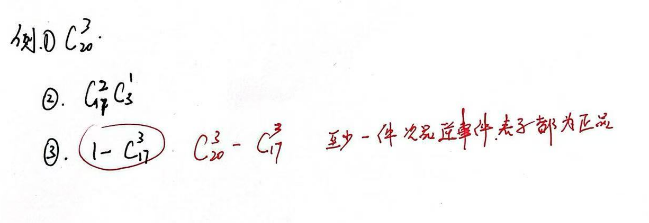 例.① C₂₀³.
②. C₁₇² C₃¹
③. 1 - C₁₇³ C₂₀³ - C₁₇³ 至少一件次品逆事件.表示都为正品